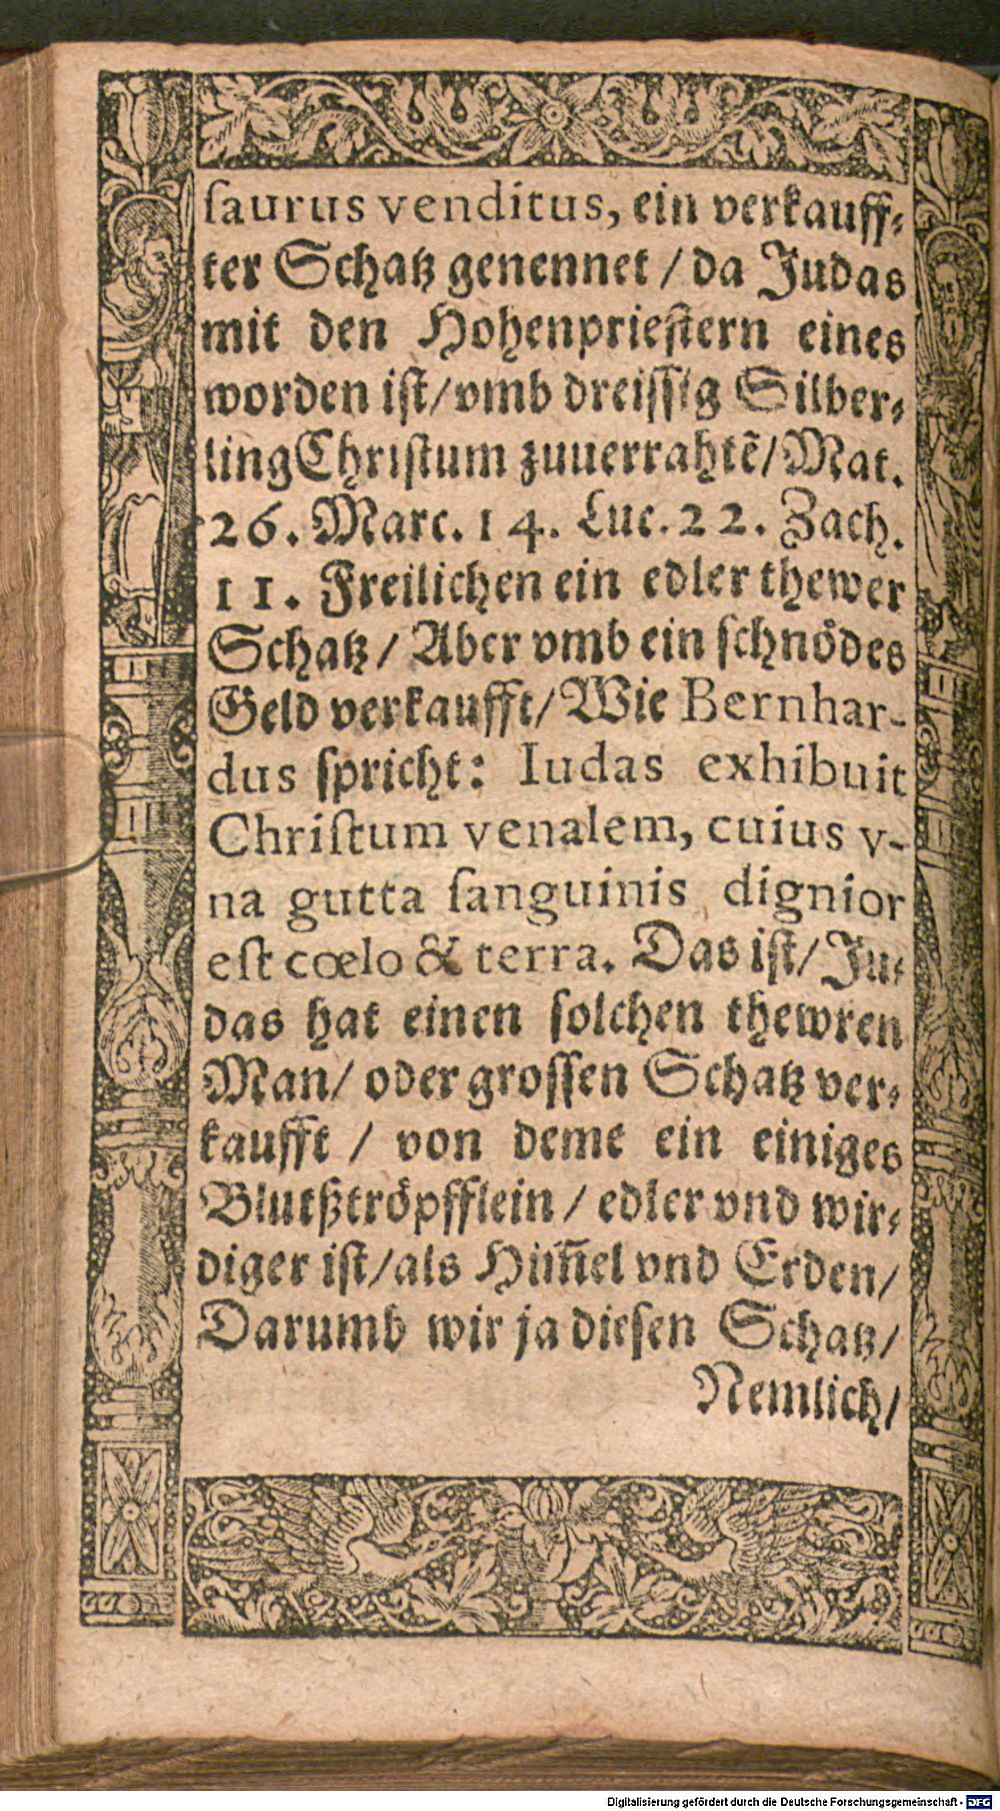 ſaurus venditus, ein verkauff⸗
ter Schatz genennet / da Judas
mit den Hohenprieſtern eines
worden iſt / vmb dreiſſig Silber⸗
ling Chriſtum zuuerrahtẽ / Mat.
26. Marc. 14. Luc. 22. Zach.
11. Freilichen ein edler thewer
Schatz / Aber vmb ein ſchnödes
Geld verkaufft / Wie Bernhar-
dus ſpricht: Iudas exhibuit
Chriſtum venalem, cuius v-
na gutta ſanguinis dignior
eſt cœlo & terra. Das iſt / Ju⸗
das hat einen ſolchen thewren
Man / oder groſſen Schatz ver⸗
kaufft / von deme ein einiges
Blutßtröpfflein / edler vnd wir⸗
diger iſt / als Him̃el vnd Erden /
Darumb wir ja dieſen Schatz /
Nemlich /
Digitalisierung gefördert durch die Deutsche Forschungsgemeinschaft - DFG